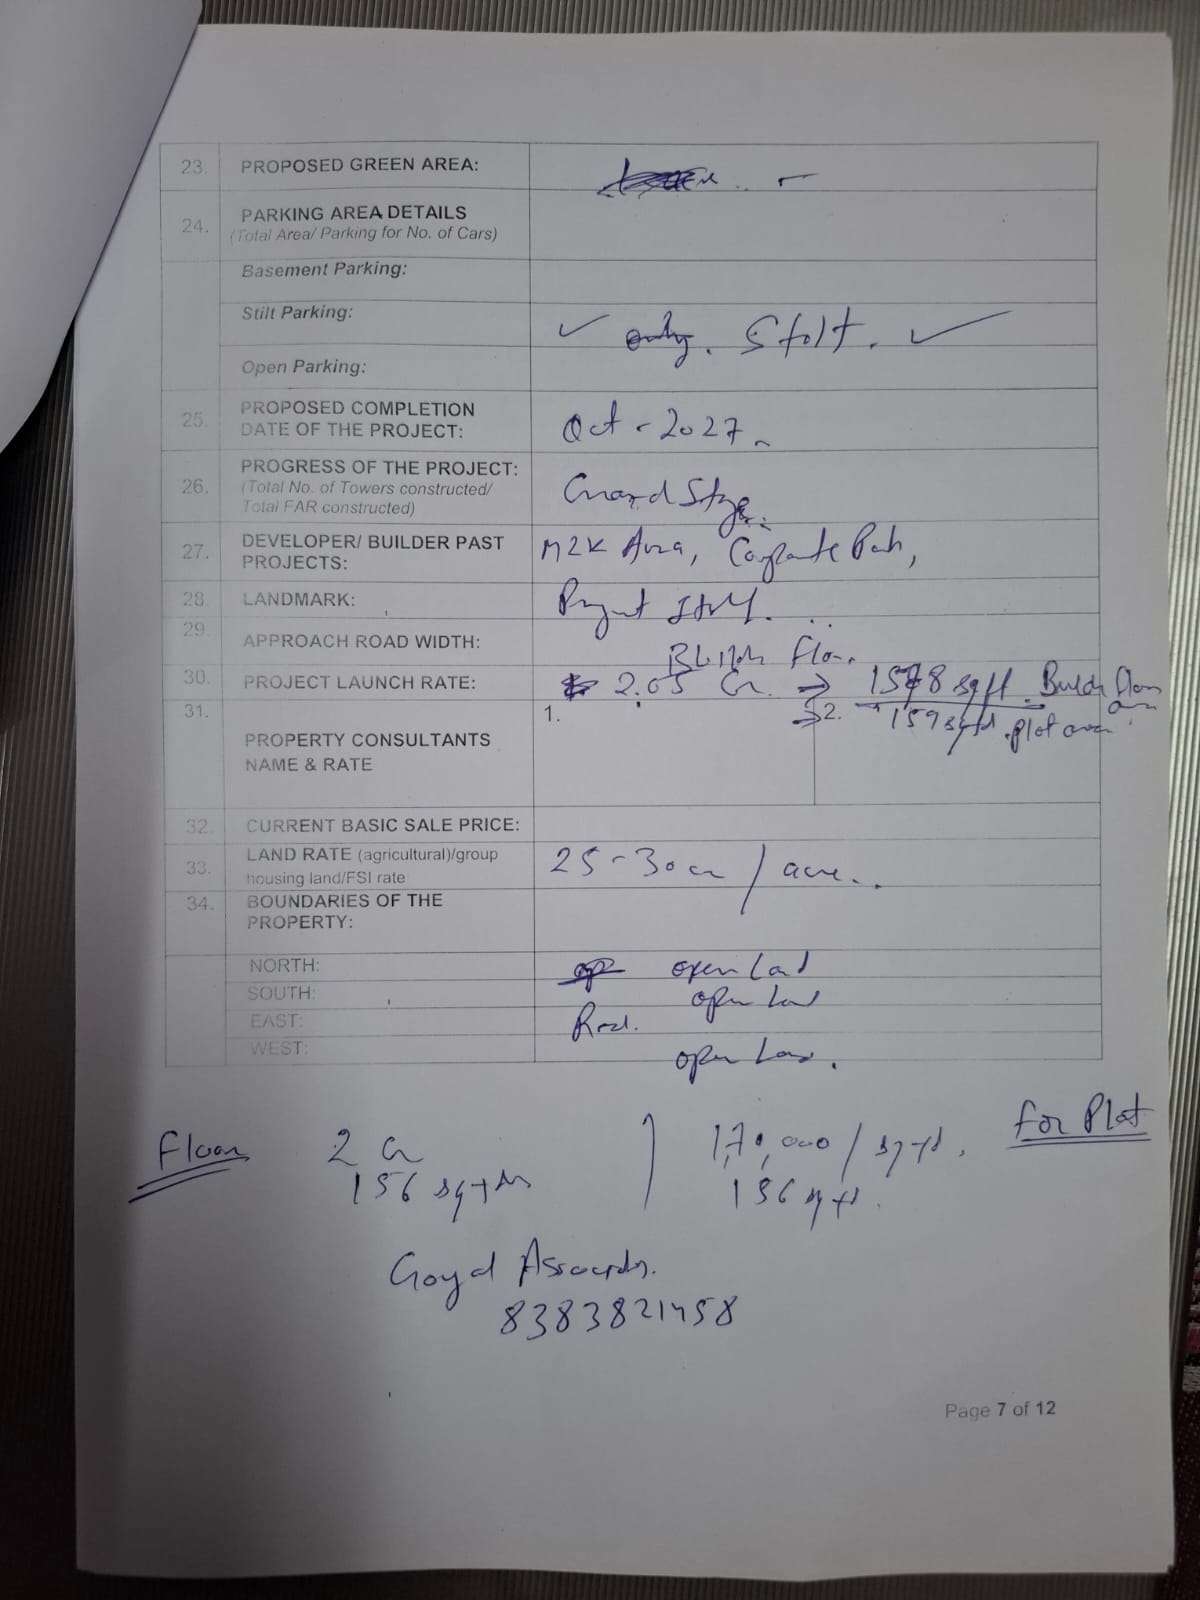 23. PROPOSED GREEN AREA: –
24. PARKING AREA DETAILS
(Total Area/ Parking for No. of Cars)
Basement Parking:
Stilt Parking: ✓ only. Stilt. ✓
Open Parking:
25. PROPOSED COMPLETION
DATE OF THE PROJECT: Oct - 2027.
26. PROGRESS OF THE PROJECT:
(Total No. of Towers constructed/
Total FAR constructed)
27. DEVELOPER/ BUILDER PAST
PROJECTS: M2K Aura, Corporate Park,
28. LANDMARK: Project Itself.
29. APPROACH ROAD WIDTH:
Floor
30. PROJECT LAUNCH RATE: 2.05 Cr. → 1578 sqft. Builder Floor
→ 159 sqyd. plot area
31. PROPERTY CONSULTANTS
NAME & RATE
1. 2.
32. CURRENT BASIC SALE PRICE:
33. LAND RATE (agricultural)/group
housing land/FSI rate 25-30 cr / acre.
34. BOUNDARIES OF THE
PROPERTY:
NORTH: open Land
SOUTH: open Land
EAST: Road.
WEST: open Land.
Floor 2 Cr
156 sqyds
1,70,000 / sqyd. For Plot
156 sqyd.
Goyal Associates.
8383821458
Page 7 of 12